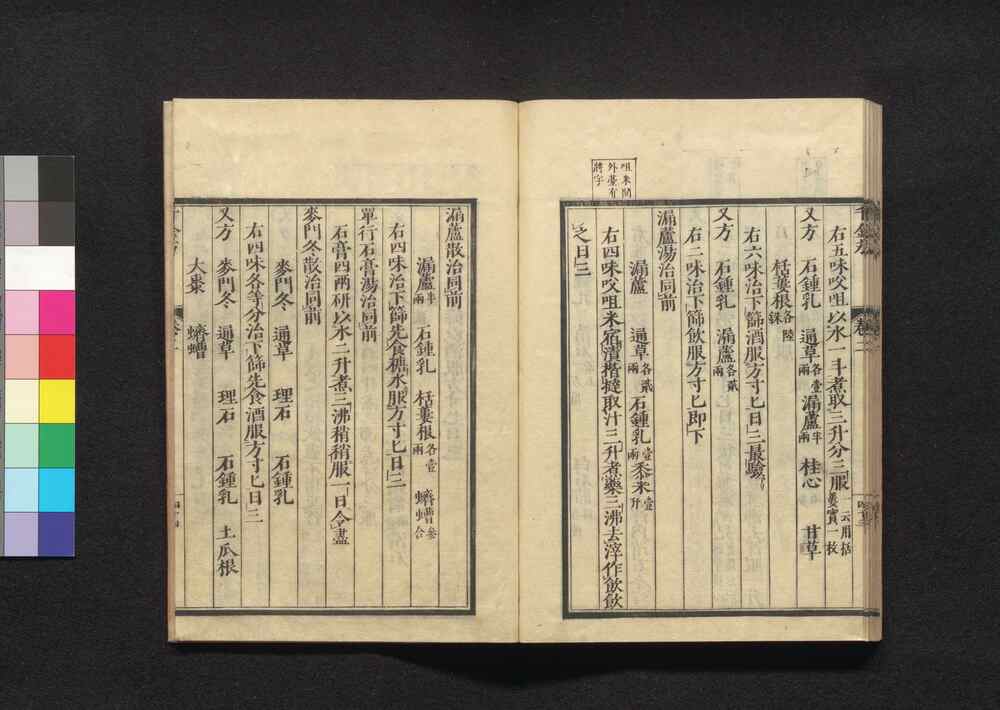 右五味㕮咀以水一斗煮取三升分三服一云用栝蔞實一枚
又方　石鍾乳　通草各壹兩　漏蘆半兩　桂心　甘草
栝蔞根各陸銖
右六味治下篩酒服方寸匕日三最驗
又方　石鍾乳　漏蘆各貳兩
右二味治下篩飲服方寸匕即下
漏蘆湯治同前
漏蘆　通草各貳兩　石鍾乳壹兩　黍米壹升
右四味㕮咀米宿漬揩撻取汁三升煮藥三沸去滓作飲飲
之日三
咀米間
外臺有
將字
漏蘆散治同前
漏蘆半兩　石鍾乳　栝蔞根各壹兩　蠐螬參合
右四味治下篩先食糖水服方寸匕日三
單行石膏湯治同前
石膏四兩研以水二升煮三沸稍稍服一日令盡
麥門冬散治同前
麥門冬　通草　理石　石鍾乳
右四味各等分治下篩先食酒服方寸匕日三
又方　麥門冬　通草　理石　石鍾乳　土瓜根
大棗　蠐螬